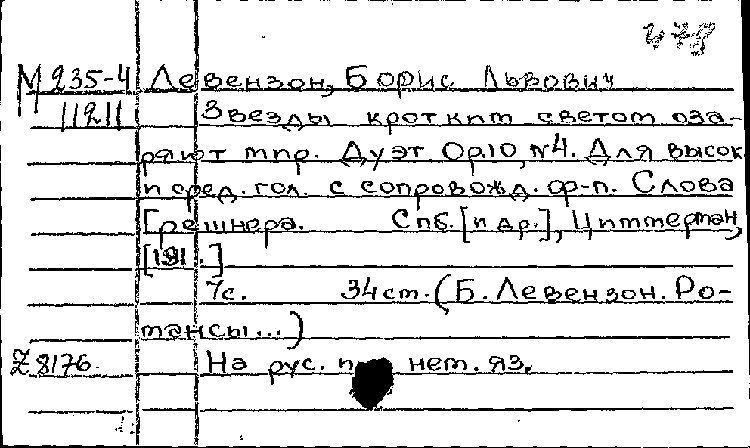 478
М 235-4 Левензон, Борис Львович
11211 Звезды кротким светом оза-
ряют мир. Дуэт Op.10, №4. Для высок.
и сред. гол. с сопровожд. ф-п. Слова
Грешнера. Спб. [и др.], Циммерман,
[191 .]
7с. 34см. (Б. Левензон. Ро-
мансы...)
Z 8176. На рус. и нем. яз.